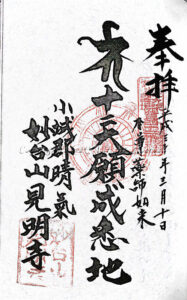 奉拝
平成 年三月十日
本尊薬師如来
九十三天願成悉地
小城郡晴氣
妙台山見明寺